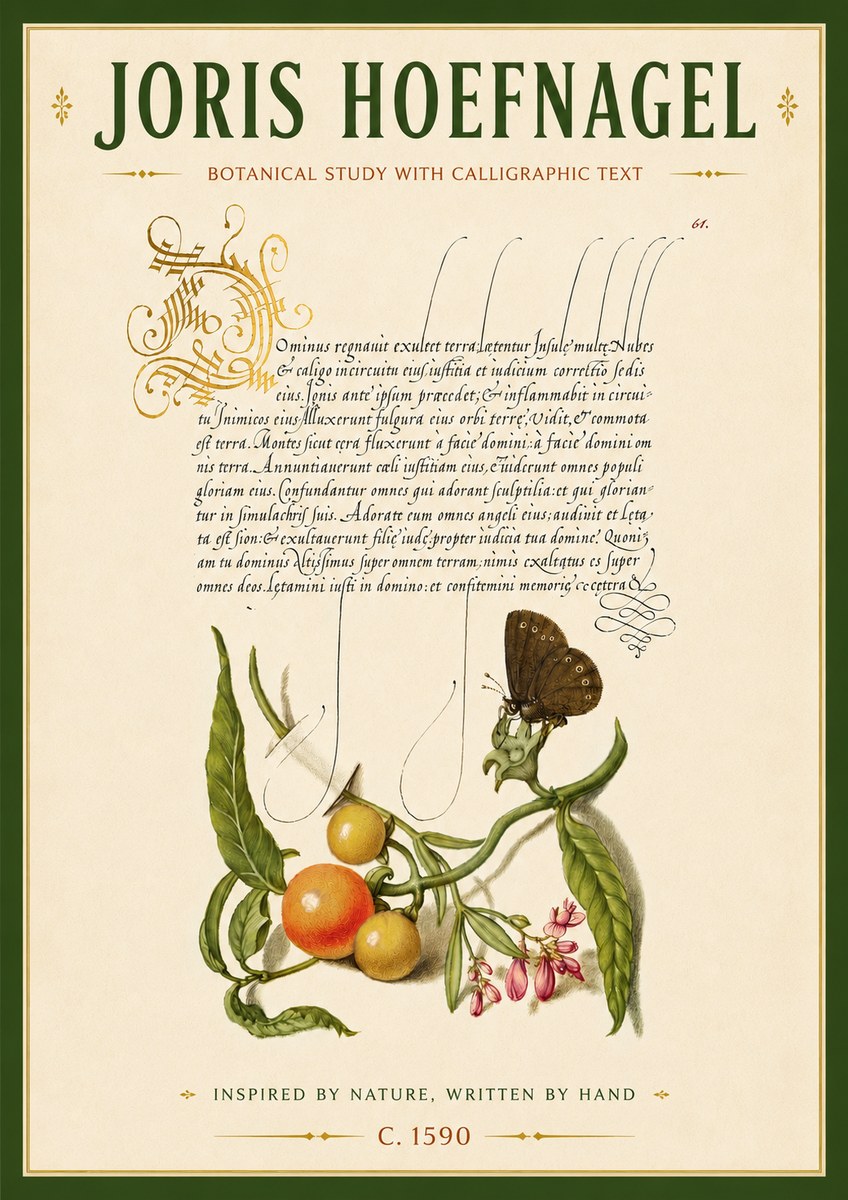 JORIS HOEFNAGEL
BOTANICAL STUDY WITH CALLIGRAPHIC TEXT
61.
Ominus regnauit exultet terra: lætentur Insulę multę. Nubes
& caligo in circuitu eius: iustitia et iudicium correctio sedis
eius. Ignis ante ipsum præcedet; & inflammabit in circui-
tu Inimicos eius Alluxerunt fulgura eius orbi terrę; Vidit, & commota
est terra. Montes sicut cera fluxerunt à facie domini: à facie domini om
nis terra. Annuntiauerunt cæli iustitiam eius, & uiderunt omnes populi
gloriam eius. Confundantur omnes qui adorant sculptilia: et qui glorian-
tur in simulachris suis. Adorate eum omnes angeli eius; audiuit et lęta
ta est sion: & exultauerunt filię iudę: propter iudicia tua domine. Quoni
am tu dominus altissimus super omnem terram; nimis exaltatus es super
omnes deos. Lętamini iusti in domino: et confitemini memorię &
INSPIRED BY NATURE, WRITTEN BY HAND
C. 1590